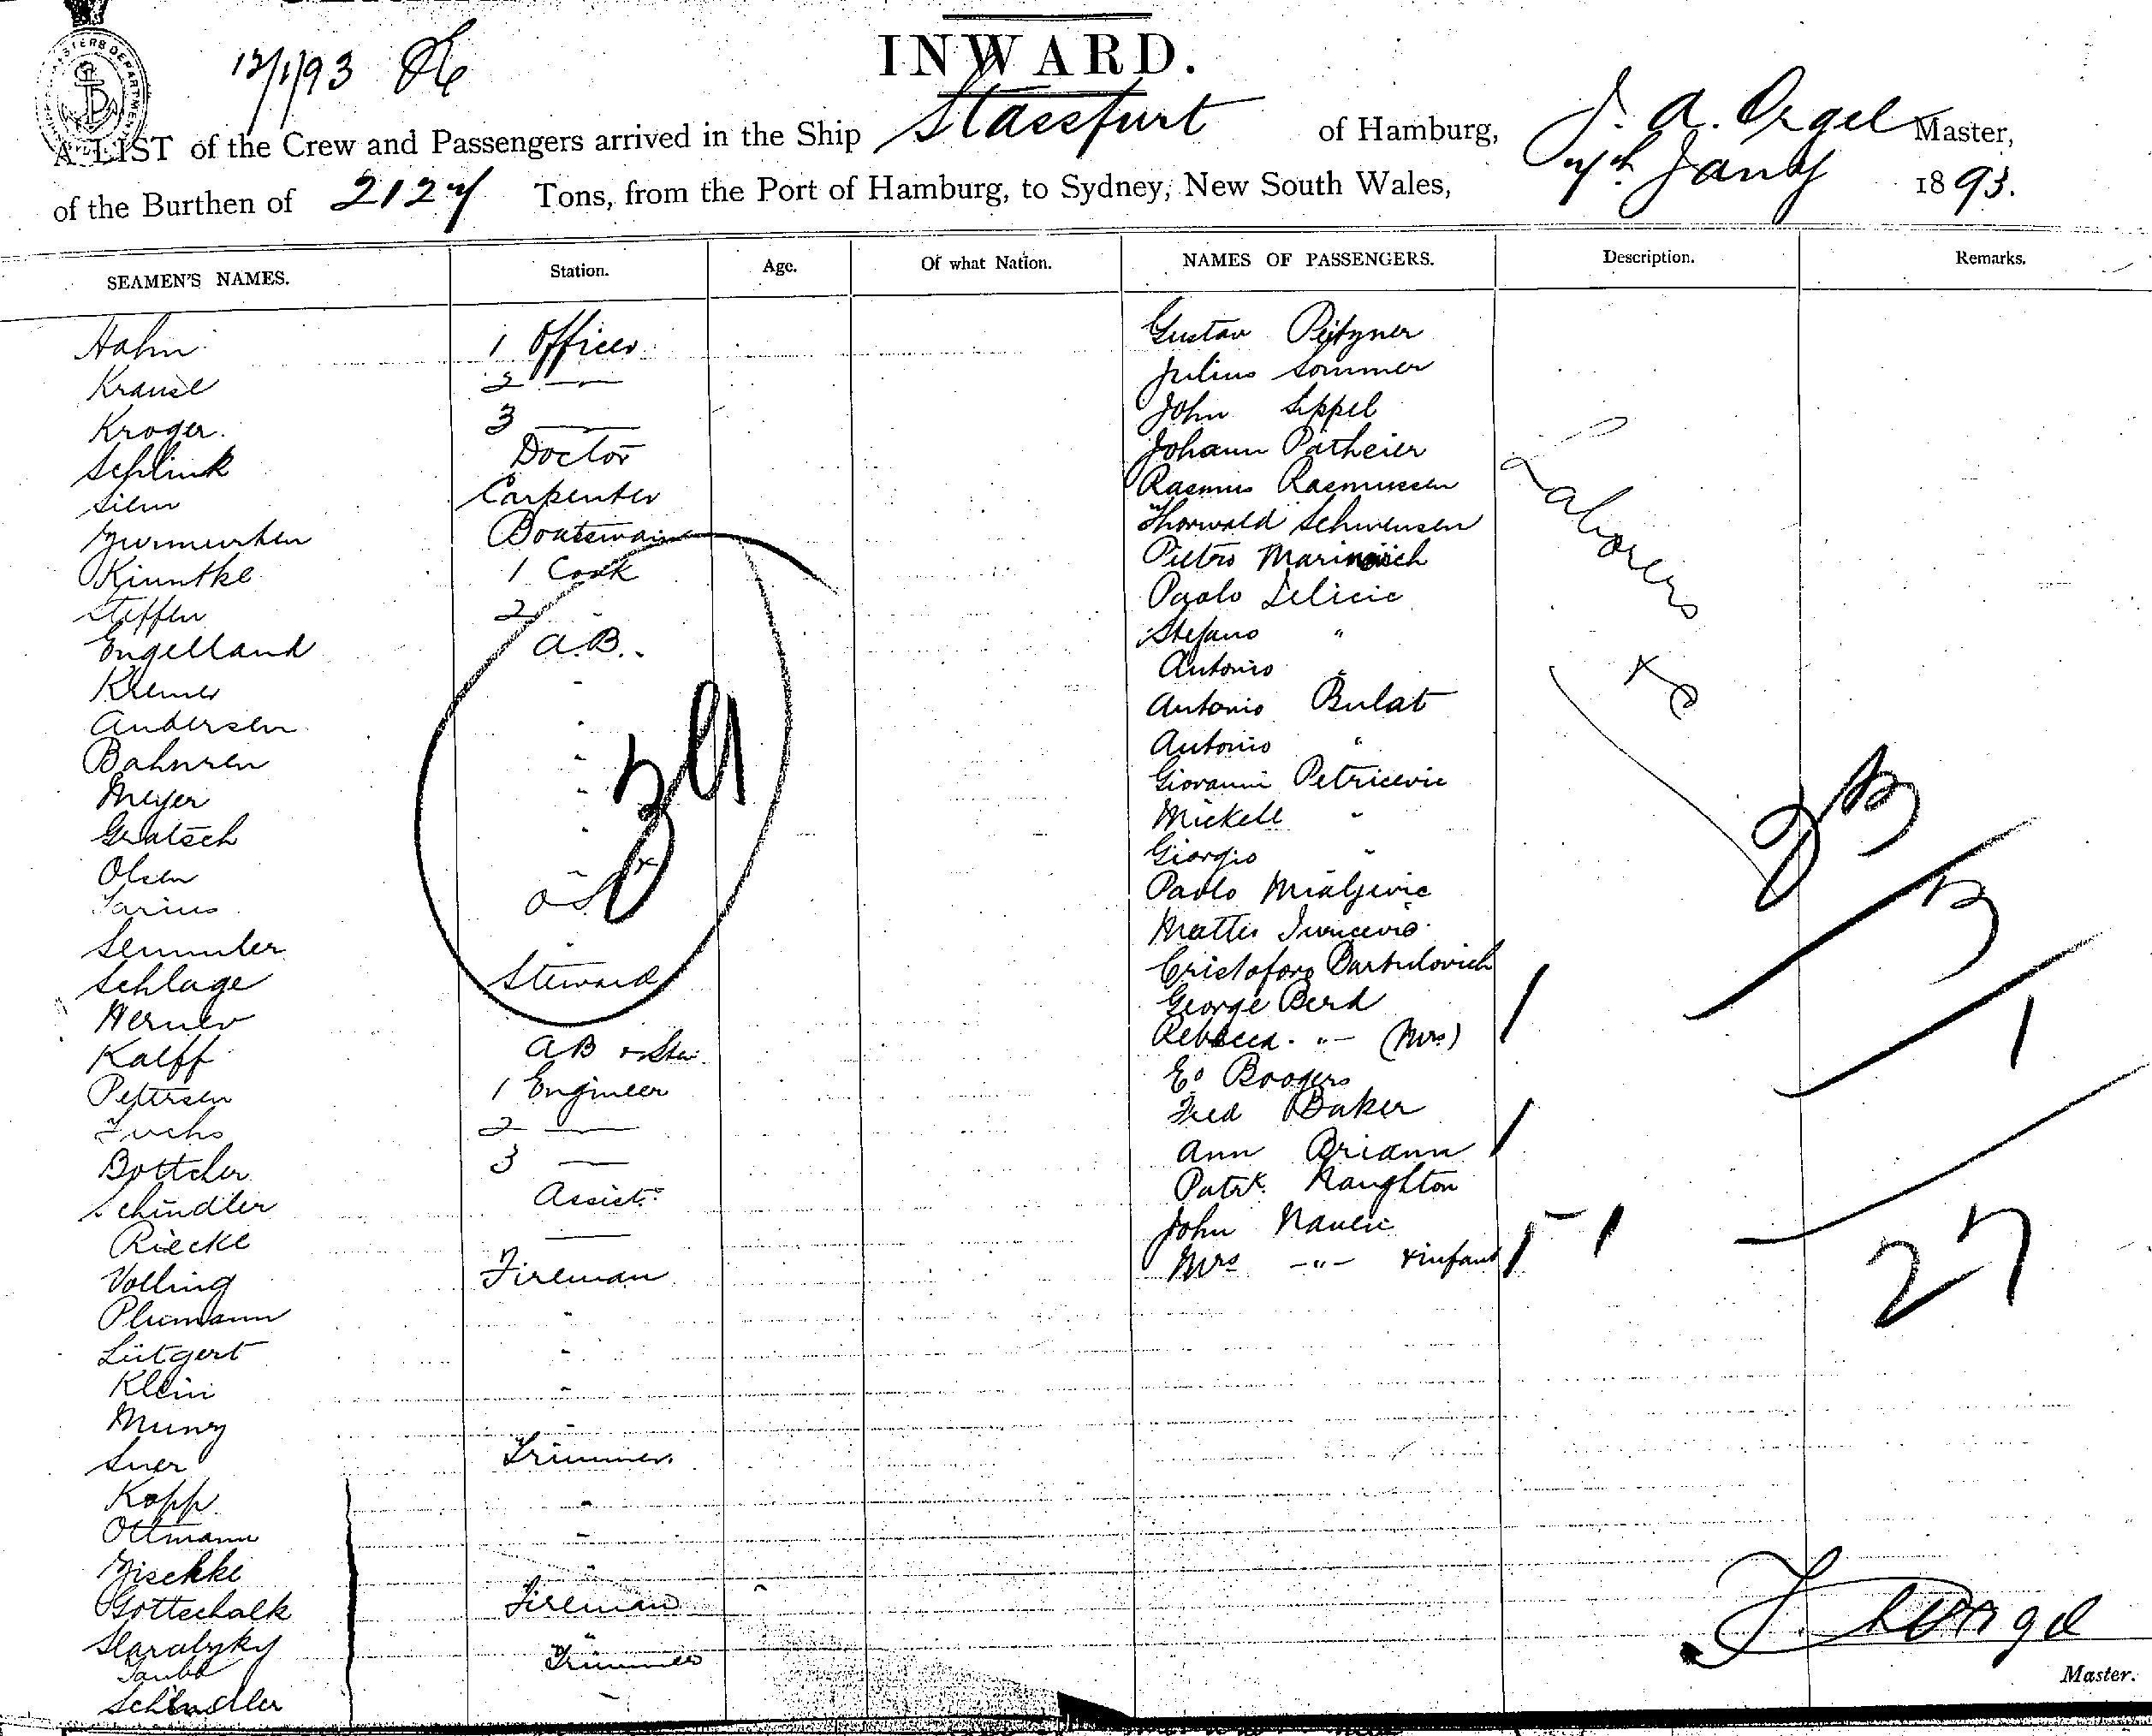 12/1/93
INWARD.
A LIST of the Crew and Passengers arrived in the Ship Stassfurt of Hamburg, J. A. Orgel Master,
of the Burthen of 2127 Tons, from the Port of Hamburg, to Sydney, New South Wales, 7th Jany 1893.
SEAMEN'S NAMES. Station. Age. Of what Nation. NAMES OF PASSENGERS. Description. Remarks.
Hahn 1 Officer Gustav
Krause 2 — Julius Sommer
Kroger 3 — John Sippel
Schlink Doctor Johann Patheier
Siem Carpenter Rasmus Rasmussen
Boatswain Thorwald Schwensen
1 Cook Pietro Marinovich
Steffen 2 " Paolo Lelicic
Engelland A.B. Stefano "
Kremer " Antonio "
Andersen " Antonio Bulat
Bahnsen " Antonio "
Meyer " Giovanni Petricevic
" Mickele "
Olsen " Giorgio "
O.S. Paolo
" Matteo
Schlage Steward Cristoforo
Werner George Berd
Kalff AB Rebecca " (Mrs)
Petersen 1 Engineer Boogers
Fuchs 2 — Fred Baker
Bottcher 3 — Ann
Schindler Assist. Patrk. Naughton
Riecke — John
Volling Fireman Mrs — " — & infant
Plumann "
Lütgert "
Klein "
"
Suer Trimmer
Kopp "
Ottmann "
Mischke "
Gottschalk Fireman
"
Taube Trimmer
Schindler "
39
Laborers
&c
23
3
1
27
Master.